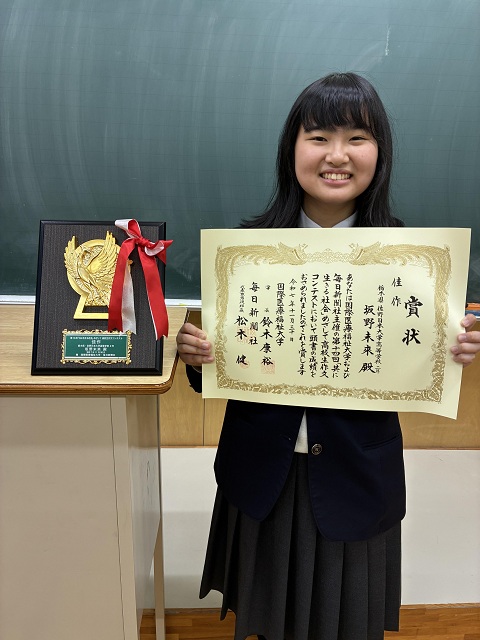 賞状
佳作
栃木県 佐野日本大学高等学校 一年
坂野未來 殿
あなたは国際医療福祉大学および
毎日新聞社主催の第十四回「共に
生きる社会」めざして高校生作文
コンテストにおいて頭書の成績を
おさめられましたのでこれを賞します
令和七年十一月三十日
国際医療福祉大学
学長 鈴木康裕
毎日新聞社
代表取締役社長 松木健